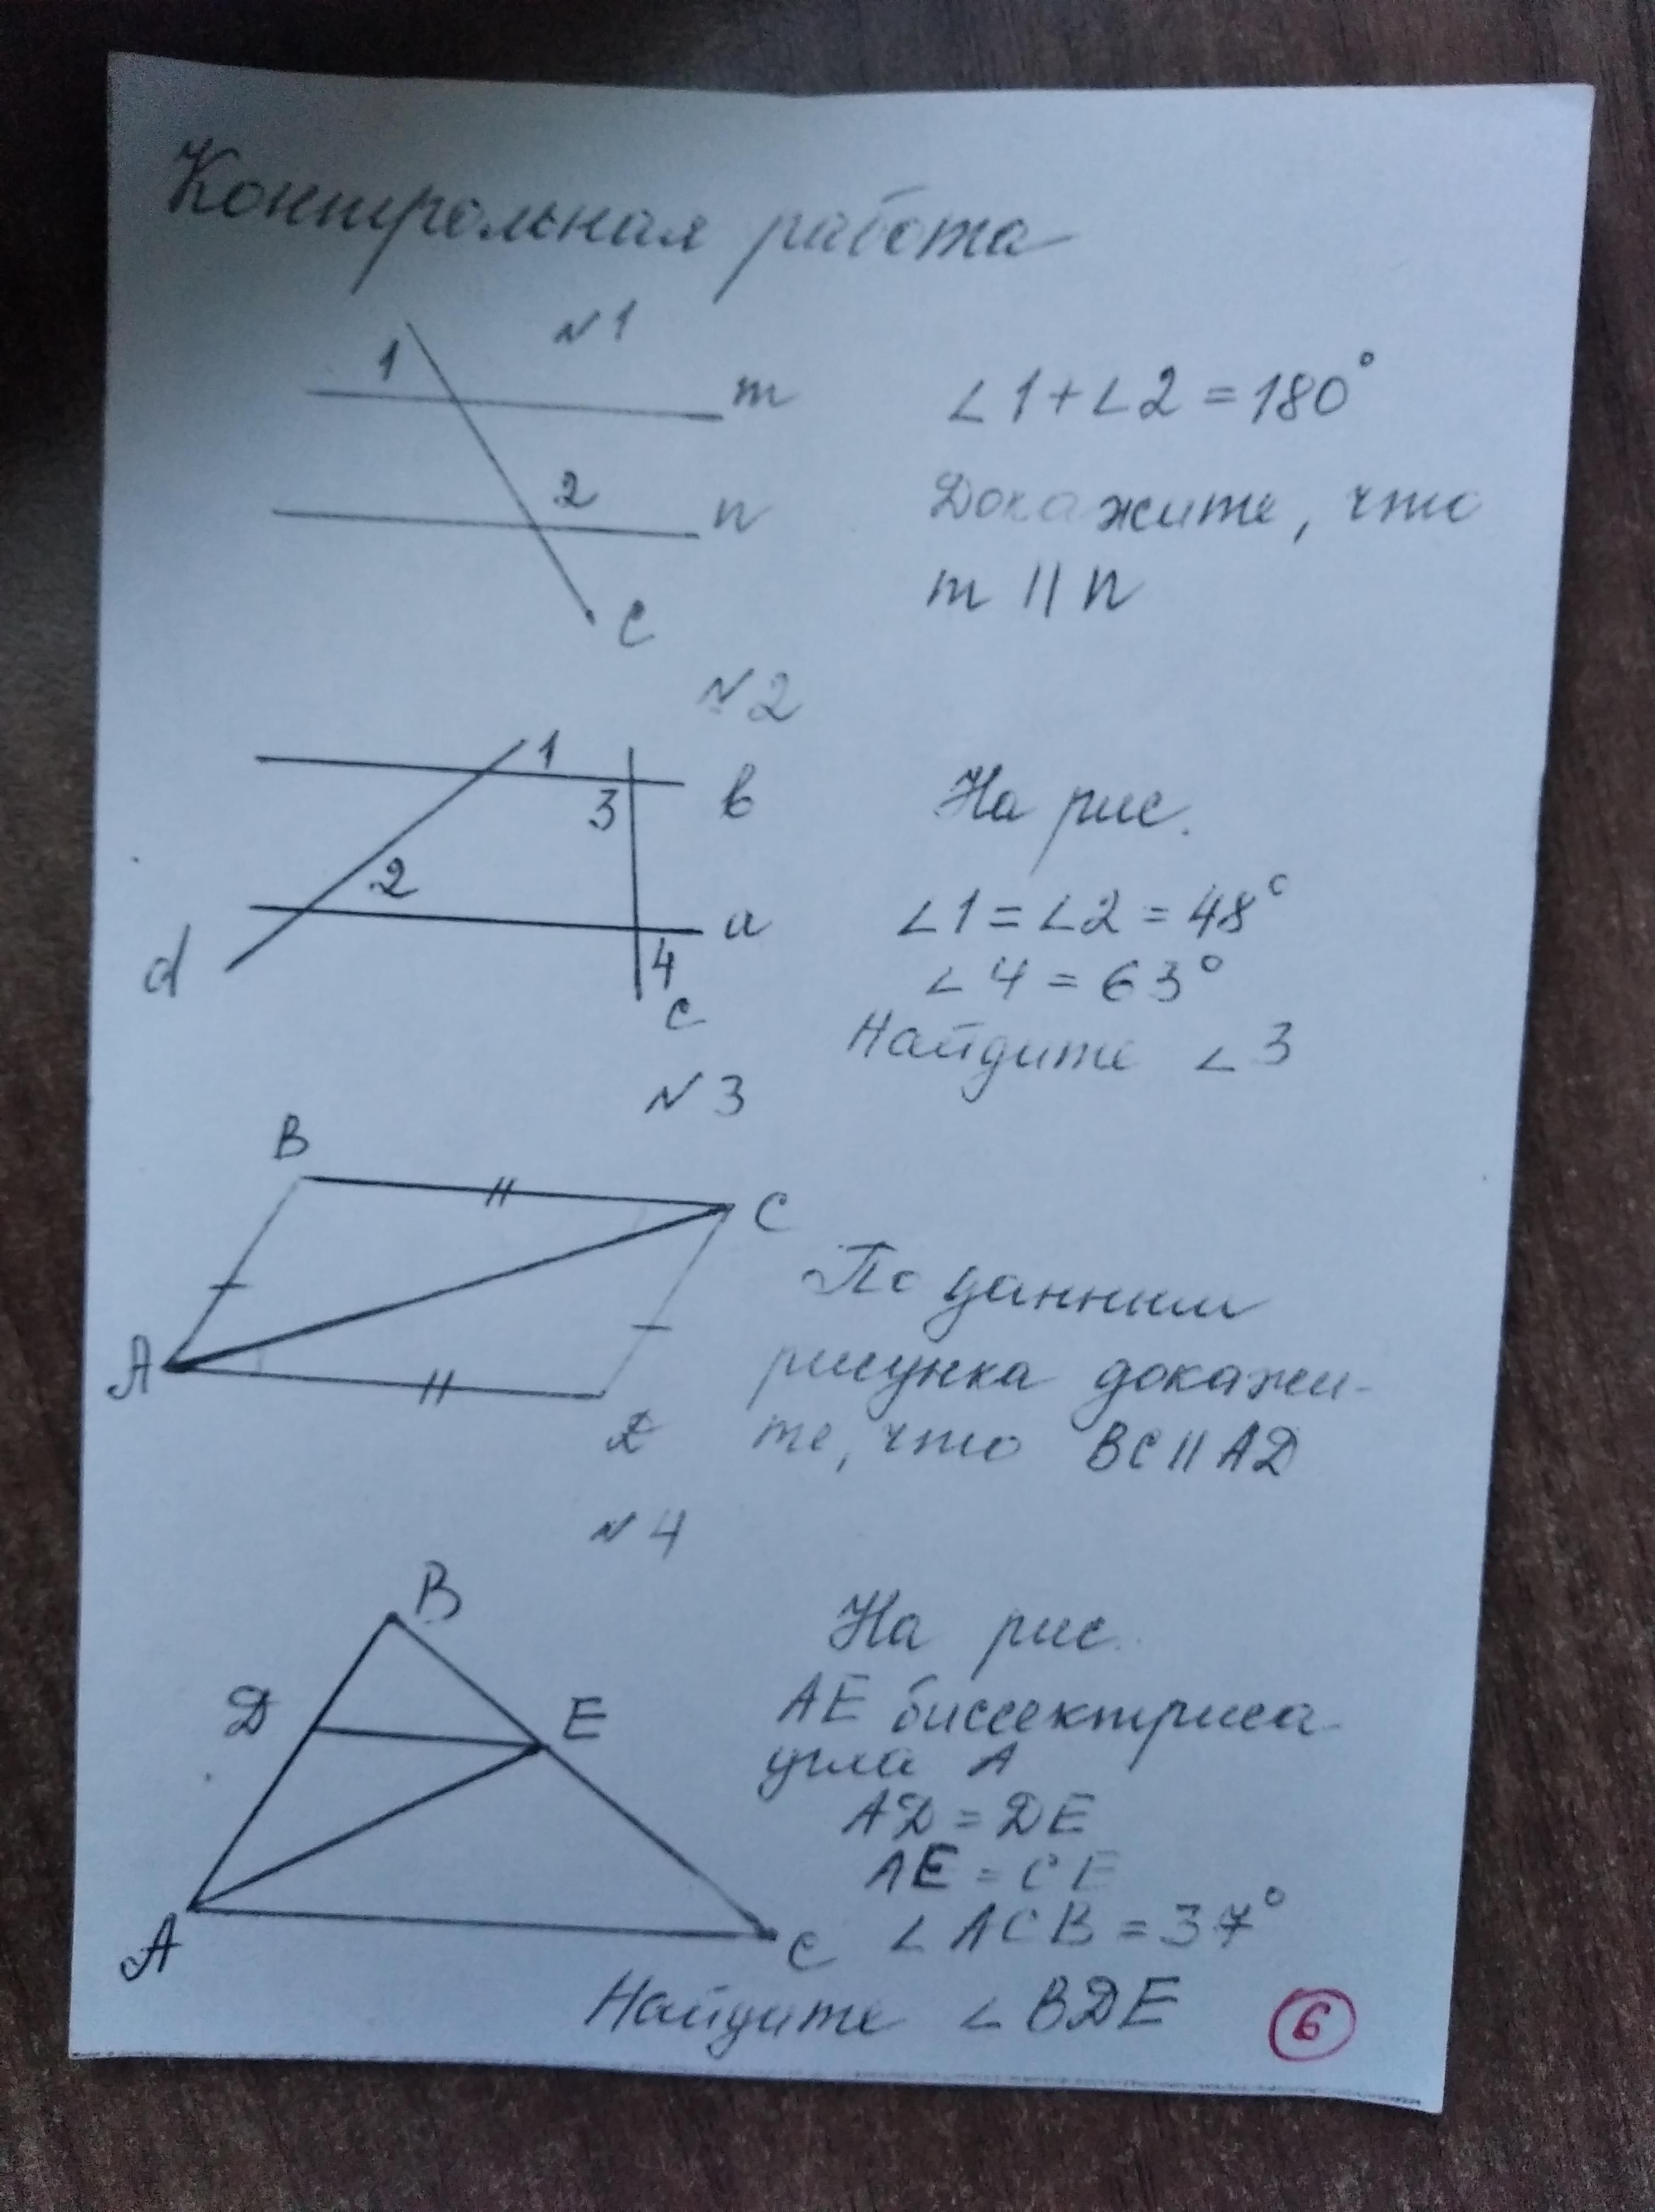 Контрольная работа
№1
1
m
2
n
c
∠1+∠2=180°
Докажите, что
m || n
№2
1
3
b
2
a
d
4
c
На рис.
∠1=∠2=48°
∠4=63°
Найдите ∠3
№3
B
C
A
D
По данным
рисунка докажи-
те, что BC || AD
№4
B
D
E
A
C
На рис.
AE биссектриса
угла A
AD=DE
AE=CE
∠ACB=37°
Найдите ∠BDE
6